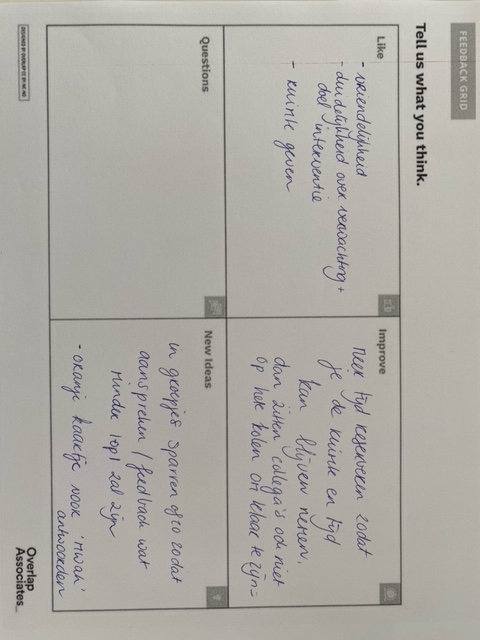 FEEDBACK GRID
Tell us what you think.
Like
- vriendelijkheid
- duidelijkheid over verwachting +
doel interventie
- ruimte geven
Improve
Meer tijd reserveren zodat
je de ruimte en tijd
kan blijven nemen.
dan zitten collega's ook niet
op hete kolen om klaar te zijn
Questions
New Ideas
in groepjes sparren ofzo zodat
aanspreken / feedback wat
minder top! zal zijn
- oranje kaartje voor 'mwah'
antwoorden
Overlap
Associates_